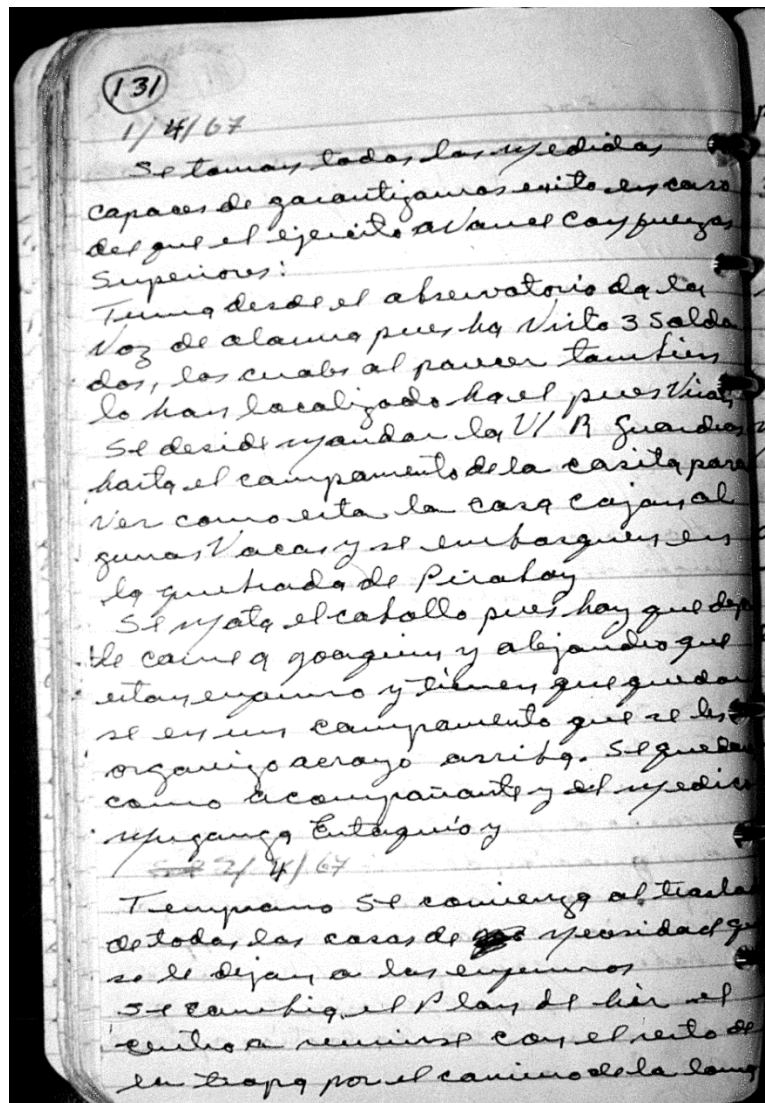 131
1/4/67
Se toman todas las medidas
capaces de garantizarnos exito en caso
del que el ejercito avance con fuerzas
superiores:
Tuma desde el observatorio da la
Voz de alarma pues ha visto 3 solda
dos, los cuales al parecer tambien
lo han localizado ha el pues
Se deside mandar la V/R Guardias
hasta el campamento de la casita para
ver como esta la casa cojan al
gunas Vacas y se embarquen en
la quebrada de Pirahay
Se mata el caballo pues hay que
le carne a goaquin y alejandro que
estan enfermo y tienen que quedar
se en un campamento que se les
organizo arroyo arriba. Se quedan
como acompañante y el medico
Muganga Eutaquio y
2/4/67
Temprano se comienza al trasla
de todas las cosas de nesesidad q
se le dejan a los enfermos
Se cambia el Plan de hir el
centro a reunirse con el resto de
la tropa por el camino de la loma